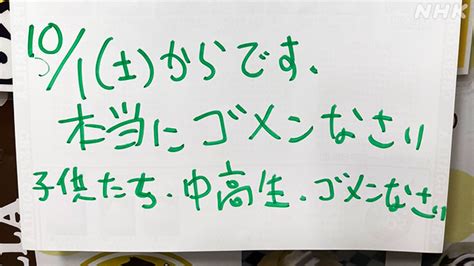 NHK
10/1(土)からです、
本当にゴメンなさい
子供たち・中高生・ゴメンなさい